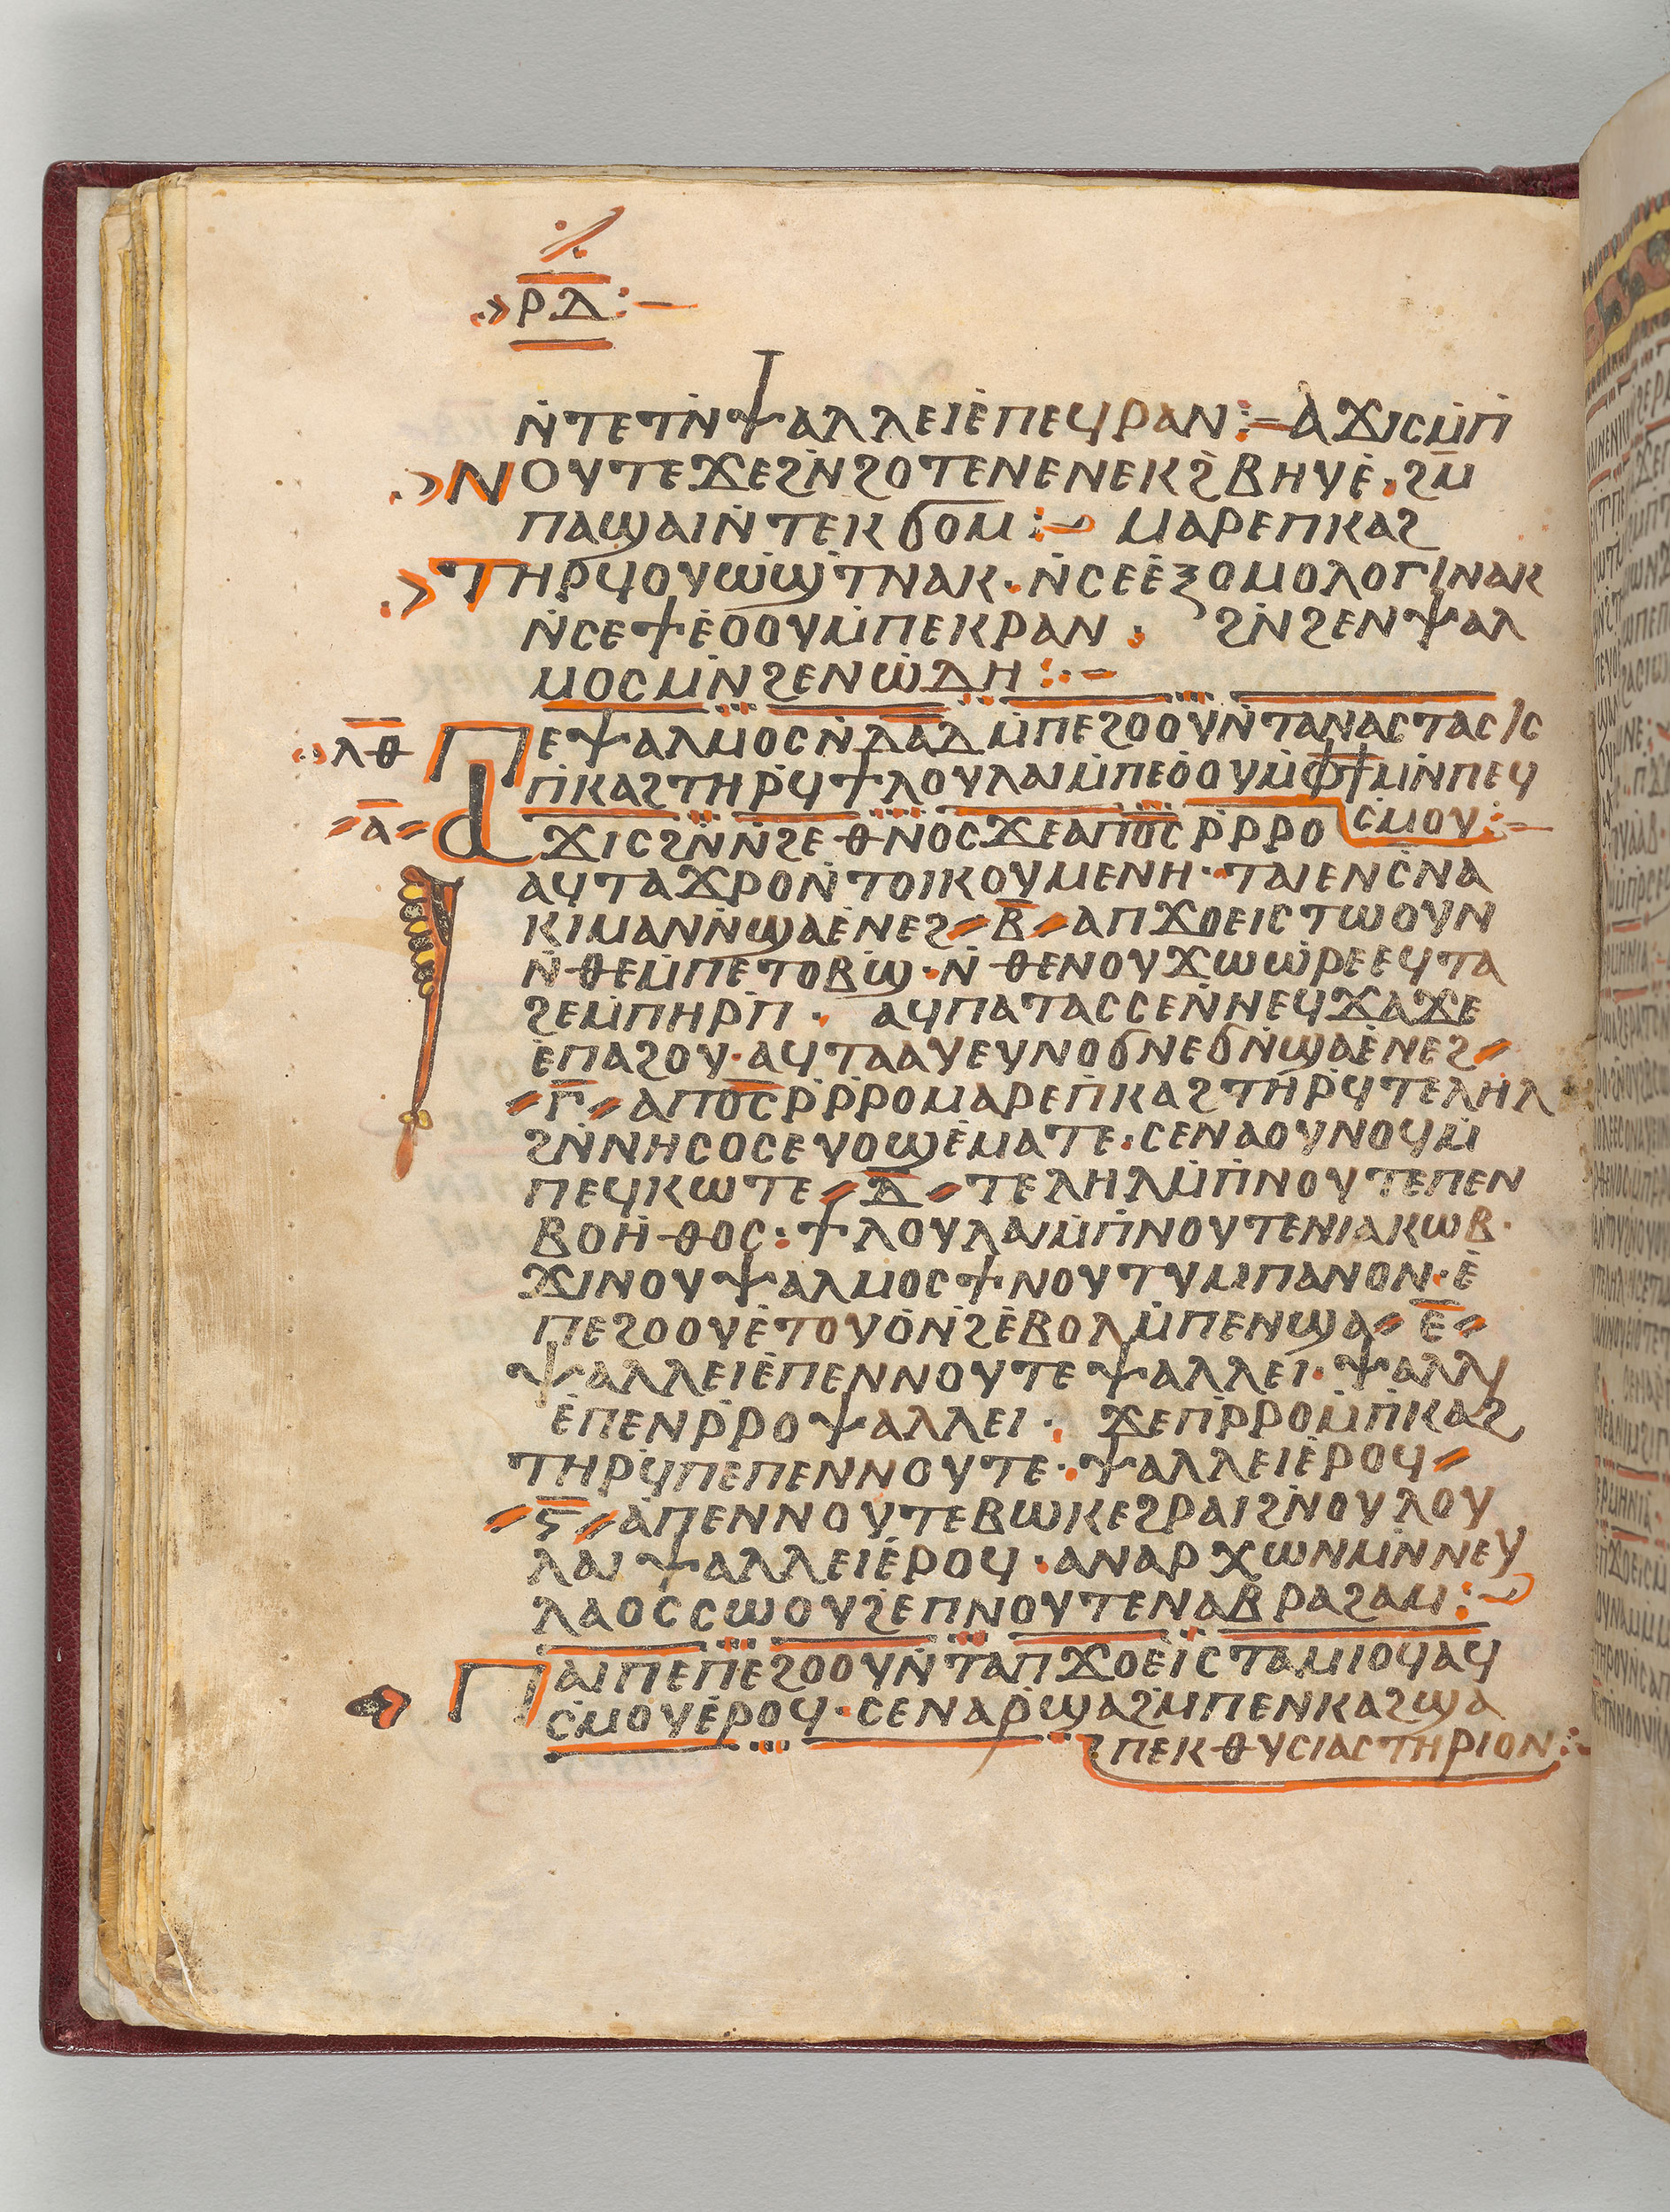 ⲣⲇ
ⲛ̇ⲧⲉⲧⲛ̇ⲯⲁⲗⲗⲉⲓⲉ̇ⲡⲉϥⲣⲁⲛ:– ⲁϫⲓⲥⲙ̇ⲡ̇
ⲛⲟⲩⲧⲉϫⲉϩⲛ̇ϩⲟⲧⲉⲛⲉⲛⲉⲕϩ̇ⲃⲏⲩⲉ̇. ϩⲙ̅
ⲡⲁϣⲁⲓⲛ̇ⲧⲉⲕϭⲟⲙ:– ⲙⲁⲣⲉⲡⲕⲁϩ
ⲧⲏⲣϥⲟⲩⲱ̇ϣ̇ⲧⲛⲁⲕ. ⲛ̇ⲥⲉⲉ̇ⲝⲟⲙⲟⲗⲟⲅⲓⲛⲁⲕ
ⲛ̇ⲥⲉϯⲉ̇ⲟⲟⲩⲙ̇ⲡⲉⲕⲣⲁⲛ. ϩⲛ̇ϩⲉⲛⲯⲁⲗ
ⲙⲟⲥⲙⲛ̇ϩⲉⲛⲱ̇ⲇⲏ:–
ⲗⲑ ⲡⲉⲯⲁⲗⲙⲟⲥⲛ̇ⲇⲁ̅ⲇ̅ⲙ̇ⲡⲉϩⲟⲟⲩⲛ̇ⲧⲁⲛⲁⲥⲧⲁⲥⲓⲥ
ⲡ̇ⲕⲁϩⲧⲏⲣ̇ϥϯⲗⲟⲩⲗⲁⲓⲙ̇ⲡⲉⲟ̇ⲟⲩⲙ̇ⲫ̅ϯ̅ⲙⲛ̇ⲡⲉϥ
ⲥ̇ⲙⲟⲩ:–
ⲁ̅ ⲁϫⲓⲥϩⲛ̇ⲛ̇ϩⲉⲑⲛⲟⲥϫⲉⲁⲡⲟ̅ⲥ̅ⲣ̇ⲣ̇ⲣⲟ
ⲁϥⲧⲁϫⲣⲟⲛ̇ⲧⲟⲓⲕⲟⲩⲙⲉⲛⲏ. ⲧⲁⲓⲉⲛⲥ̇ⲛⲁ
ⲕⲓⲙⲁⲛⲛ̇ϣⲁⲉ̇ⲛⲉϩ ⲃ̅ ⲁⲡϫⲟⲉⲓⲥⲧⲱⲟⲩⲛ
ⲛ̇ⲑⲉⲙ̇ⲡⲉⲧⲟⲃϣ̇. ⲛ̇ⲑⲉⲛⲟⲩϫⲱⲱ̇ⲣⲉⲉϥⲧⲁ
ϩⲉⲙ̇ⲡⲏⲣ̇ⲡ. ⲁϥⲡⲁⲧⲁⲥⲥⲉⲛ̇ⲛⲉϥϫⲁϫⲉ
ⲉ̇ⲡⲁϩⲟⲩ. ⲁϥⲧⲁⲁⲩⲉⲩⲛⲟϭⲛⲉϭⲛ̇ϣⲁⲉ̇ⲛⲉϩ
ⲅ̅ ⲁⲡⲟ̅ⲥ̅ⲣ̇ⲣ̇ⲣⲟⲙⲁⲣⲉⲡ̇ⲕⲁϩⲧⲏⲣ̇ϥⲧⲉⲗⲏⲗ
ϩⲛ̇ⲛⲏⲥⲟⲥⲉⲩⲟϣⲉ̇ⲙⲁⲧⲉ. ⲥⲉⲛⲁⲟⲩⲛⲟϥⲙ̇
ⲡⲉϥⲕⲱⲧⲉ ⲇ̅ ⲧⲉⲗⲏⲗⲙ̇ⲡ̇ⲛⲟⲩⲧⲉⲡⲉⲛ
ⲃⲟⲏ̇ⲑⲟⲥ: ϯⲗⲟⲩⲗⲁⲓⲙ̇ⲡ̇ⲛⲟⲩⲧⲉⲛⲓⲁⲕⲱⲃ.
ϫⲓⲛⲟⲩⲯⲁⲗⲙⲟⲥϯⲛⲟⲩⲧⲩⲙⲡⲁⲛⲟⲛ. ⲉ̇
ⲡⲉϩⲟⲟⲩⲉ̇ⲧⲟⲩⲟ̇ⲛ̇ϩⲉ̇ⲃⲟⲗⲙ̇ⲡⲉⲛϣⲁ ⲉ̅
ⲯⲁⲗⲗⲉⲓⲉ̇ⲡⲉⲛⲛⲟⲩⲧⲉⲯⲁⲗⲗⲉⲓ. ⲯⲁⲗⲗⲓ
ⲉ̇ⲡⲉⲛⲣ̇ⲣⲟⲯⲁⲗⲗⲉⲓ. ϫⲉⲡ̇ⲣ̇ⲣⲟⲙ̇ⲡ̇ⲕⲁϩ
ⲧⲏⲣϥ̇ⲡⲉⲡⲉⲛⲛⲟⲩⲧⲉ. ⲯⲁⲗⲗⲉⲓⲉ̇ⲣⲟϥ
ⲋ̅ ⲁ̇ⲡⲉⲛⲛⲟⲩⲧⲉⲃⲱⲕⲉϩⲣⲁⲓϩⲛ̇ⲟⲩⲗⲟⲩ
ⲗⲁⲓⲯⲁⲗⲗⲉⲓⲉ̇ⲣⲟϥ. ⲁⲛⲁⲣⲭⲱⲛⲙⲛ̇ⲛⲉⲩ
ⲗⲁⲟⲥⲥⲱⲟⲩϩⲉ̇ⲡⲛⲟⲩⲧⲉⲛⲁⲃⲣⲁϩⲁⲙ:–
ⲡⲁⲓⲡⲉⲡⲉϩⲟⲟⲩⲛ̇ⲧⲁⲡϫⲟⲉⲓⲥⲧⲁⲙⲓⲟϥⲁϥ
ⲥ̇ⲙⲟⲩⲉ̇ⲣⲟϥ. ⲥⲉⲛⲁⲣ̇ϣⲁϩⲙ̇ⲡⲉⲛⲕⲁϩϣⲁ
ⲡⲉⲕⲑⲩⲥⲓⲁⲥⲧⲏⲣⲓⲟⲛ:–